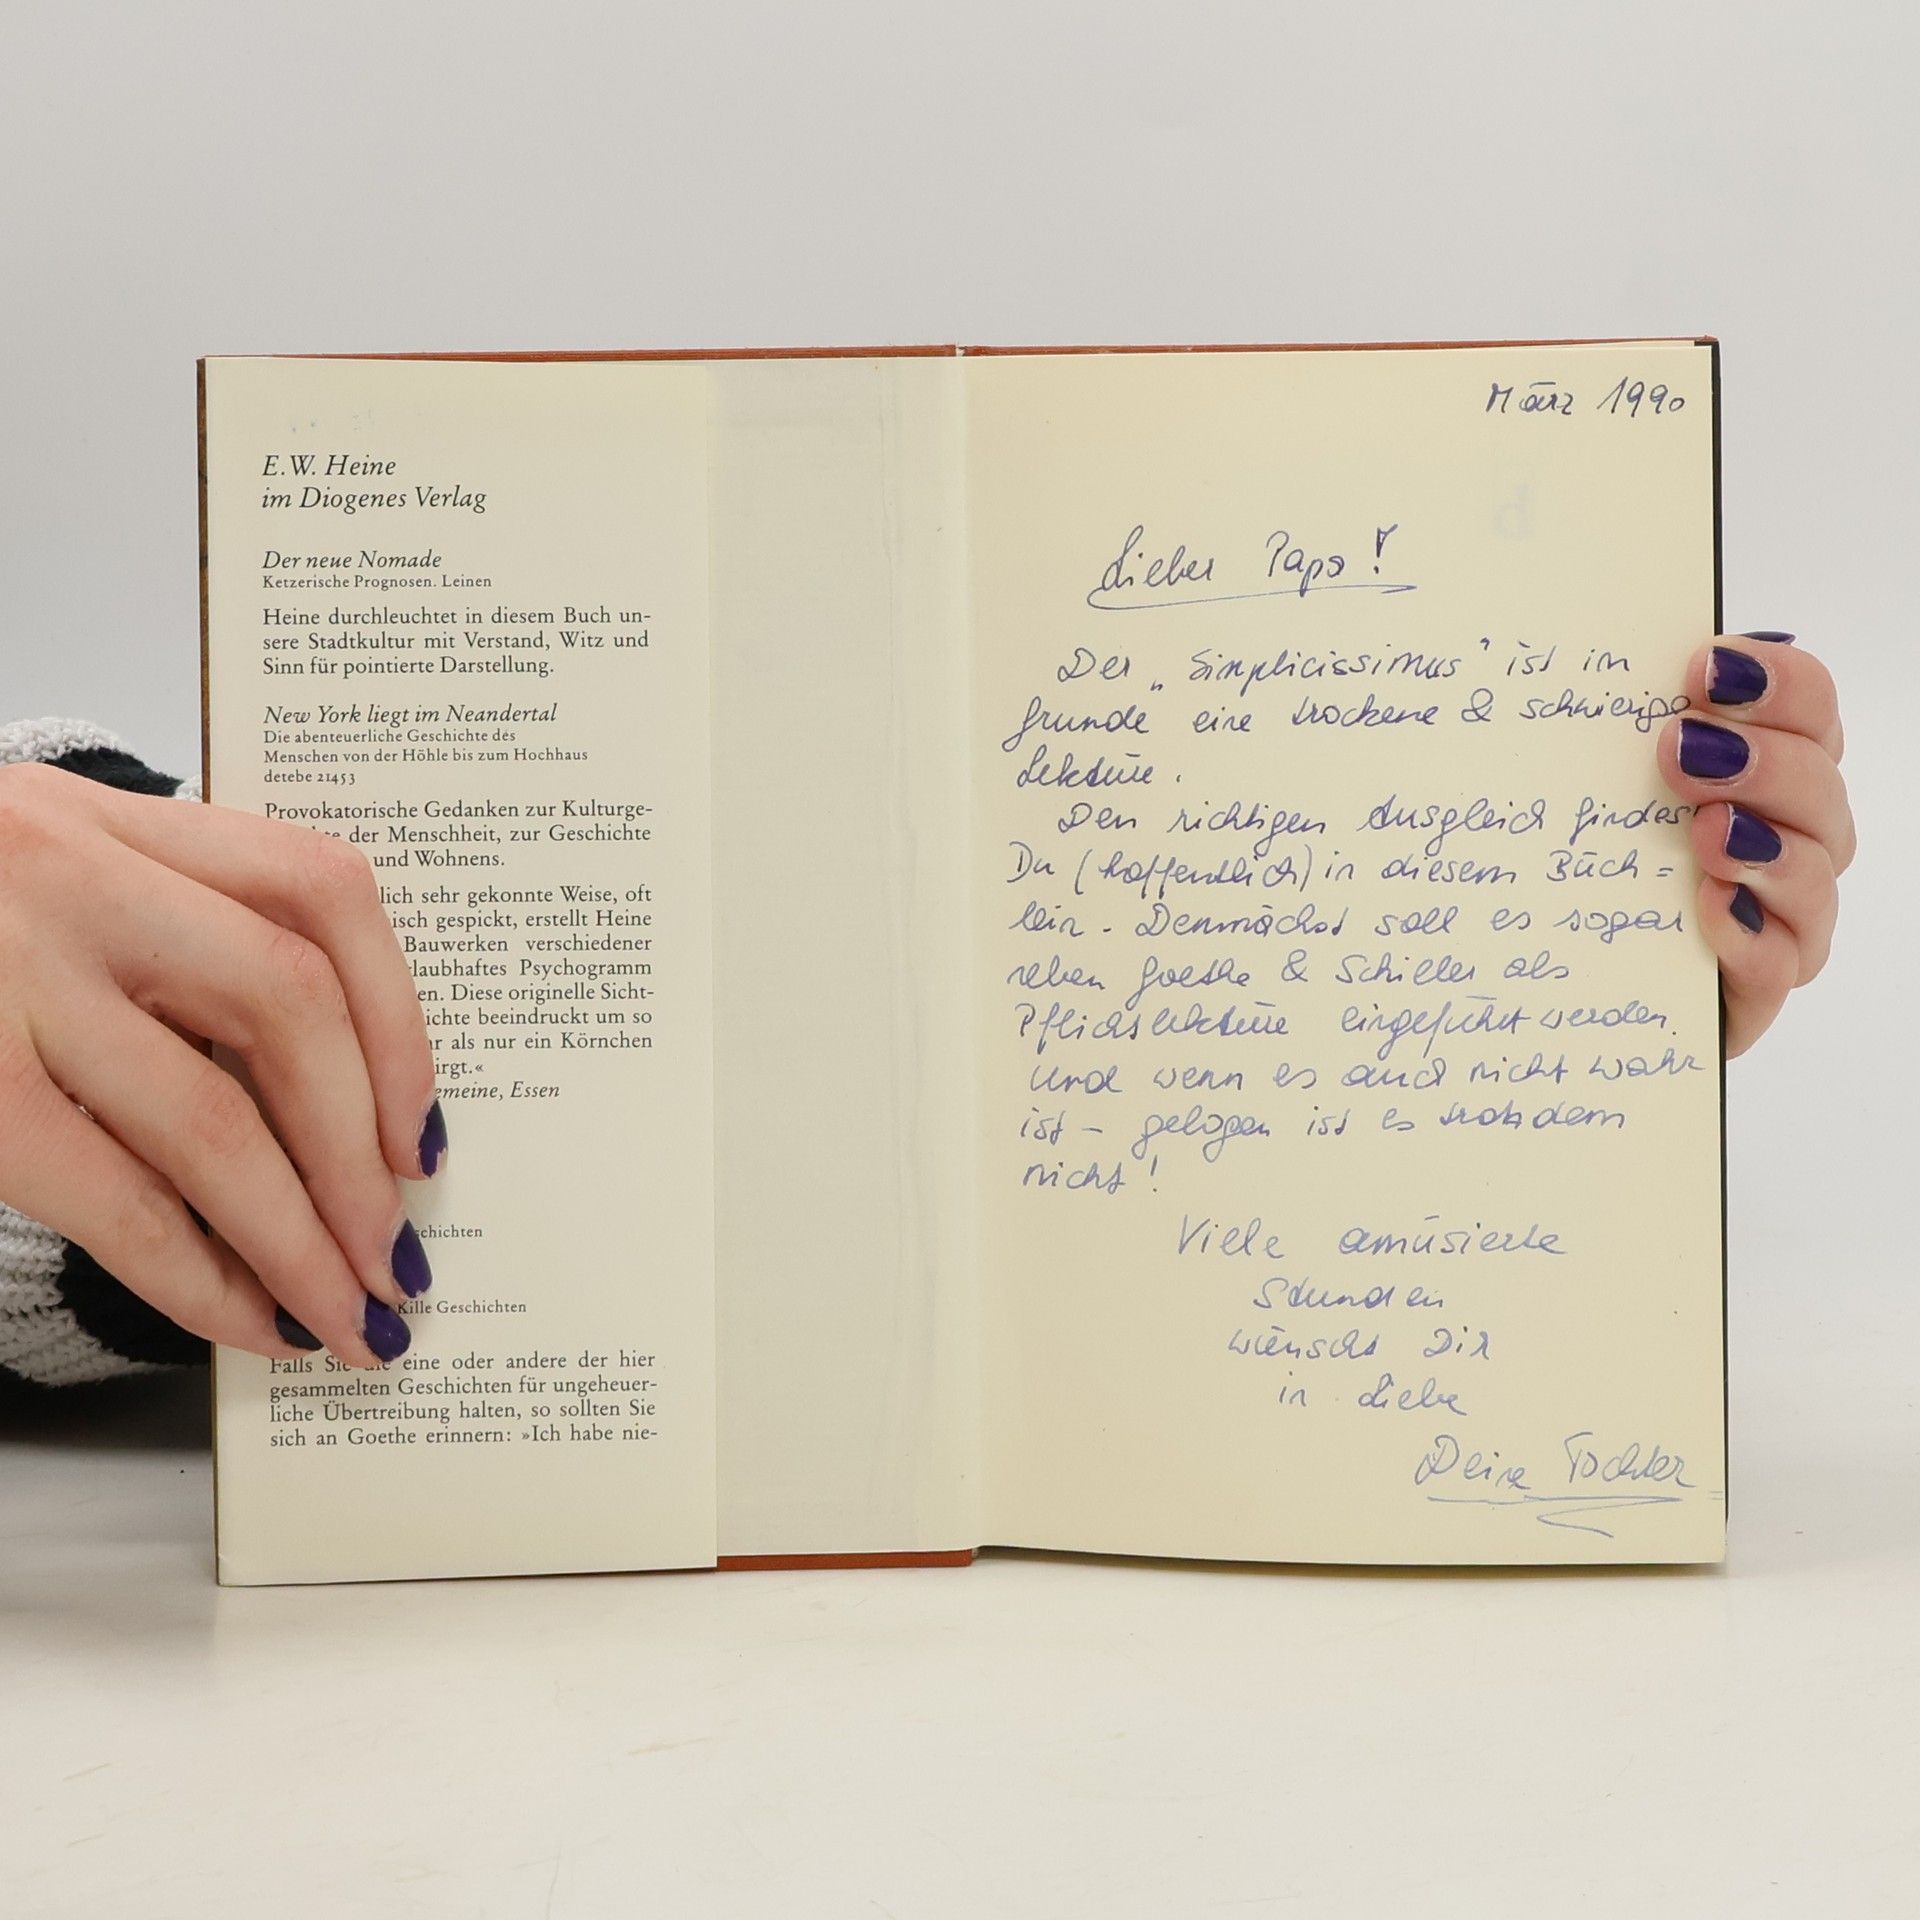 E.W. Heine
im Diogenes Verlag
Der neue Nomade
Ketzerische Prognosen. Leinen
Heine durchleuchtet in diesem Buch un-
sere Stadtkultur mit Verstand, Witz und
Sinn für pointierte Darstellung.
New York liegt im Neandertal
Die abenteuerliche Geschichte des
Menschen von der Höhle bis zum Hochhaus
detebe 21453
Provokatorische Gedanken zur Kulturge-
der Menschheit, zur Geschichte
und Wohnens.
lich sehr gekonnte Weise, oft
isch gespickt, erstellt Heine
Bauwerken verschiedener
laubhaftes Psychogramm
en. Diese originelle Sicht-
ichte beeindruckt um so
als nur ein Körnchen
irgt.«
emeine, Essen
chichten
Kille Geschichten
Falls Sie die eine oder andere der hier
gesammelten Geschichten für ungeheuer-
liche Übertreibung halten, so sollten Sie
sich an Goethe erinnern: »Ich habe nie-
März 1990
Lieber Paps!
Der „Simplicissimus" ist im
Grunde eine trockene & schwierige
Lektüre.
Den richtigen Ausgleich findest
Du (hoffentlich) in diesem Büch=
lein. Demnächst soll es sogar
neben Goethe & Schiller als
Pflichtlektüre eingeführt werden.
Und wenn es auch nicht wahr
ist – gelogen ist es trotzdem
nicht!
Viele amüsierte
Stunden
wünscht Dir
in Liebe
Deine Tochter